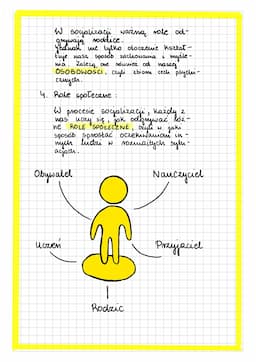 W socjalizacji ważną rolę od-
grywają rodzice.
Jednak nie tylko otoczenie kształt-
tuje nasz sposób zachowania i myśle-
nia. Zależy one również od naszej
OSOBOWOŚCI, czyli zbioru cech psychi-
cznych.
4. Role społeczne:
W procesie socjalizacji, każdy z
nas uczy się, jak odgrywać róż-
ne ROLE SPOŁECZNE, czyli w jaki
sposób sprostać oczekiwaniom in-
nych ludzi w rozmaitych sytu-
acjach.
Obywatel
Nauczyciel
Uczeń
Przyjaciel
Rodzic